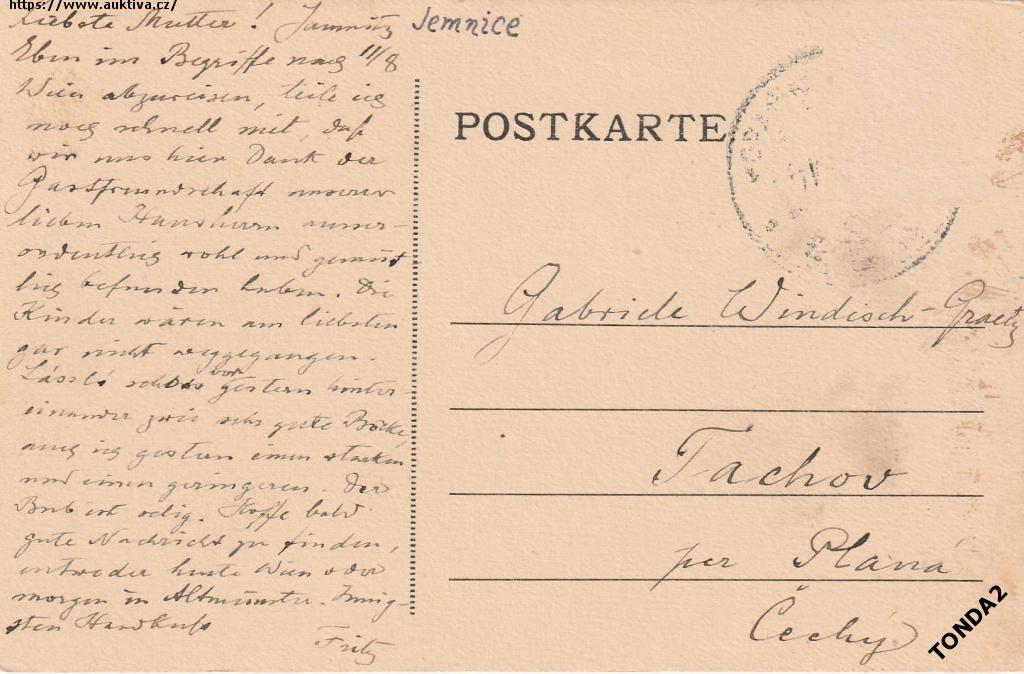 https://www.auktiva.cz/
Liebste Mutter! Jamnitz
Jemnice
Eben im Begriffe nach 11/8
Wien abzureisen, teile ich
noch schnell mit, daß
wir uns hier Dank der
Gastfreundschaft unserer
lieben Hausherrn ausser-
ordentlich wohl und gemüt-
lich befunden haben. Die
Kinder wären am liebsten
gar nicht weggegangen.
László schoss vorgestern hinter-
einander zwei sehr gute Böcke,
auch ich gestern einen starken
und einen geringeren. Der
Bub ist selig. Hoffe bald
gute Nachricht zu finden,
entweder heute Wien oder
morgen in Altmünster. Innig-
sten Handkuß
Fritz
POSTKARTE
Gabriele Windisch-Graetz
Tachov
per Planá
Čechy
TONDA2